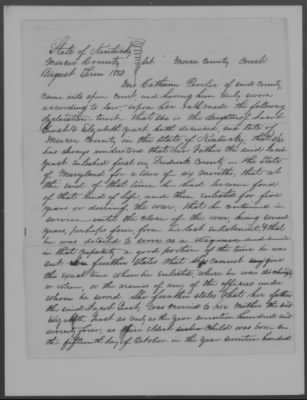 State of Kentucky
Mercer County Sct. Mercer County Court
August Term 1853
Mrs Catharine of said county
came into open court and having been duly sworn
according to law, upon her oath made the following
declaration. that she is the daughter of Isaac
& Elizabeth both deceased, and late of
Mercer County in the State of Kentucky, that she
has always understood that her Father the said Isaac
enlisted first in Frederick County in the State
of Maryland for a tour of six months, that at
the end of that time he had become fond
of that kind of life and then enlisted for five
years or during the war, that he continued in
service until the close of the war, being several
years, perhaps four, from his last enlistment & that
he was detailed to serve as a wagoner and served
in that capacity a good portion of the time he was
out. She further states that she cannot say give
the exact time when he enlisted, where he was discharged
or when, or the names of any of the officers under
whom he served. She further states that her father
the said Isaac was married to her mother the said
Elizabeth as early as the year seventeen hundred and
seventy four, as their eldest child was born on
the fifteenth day of October in the year seventeen hundred